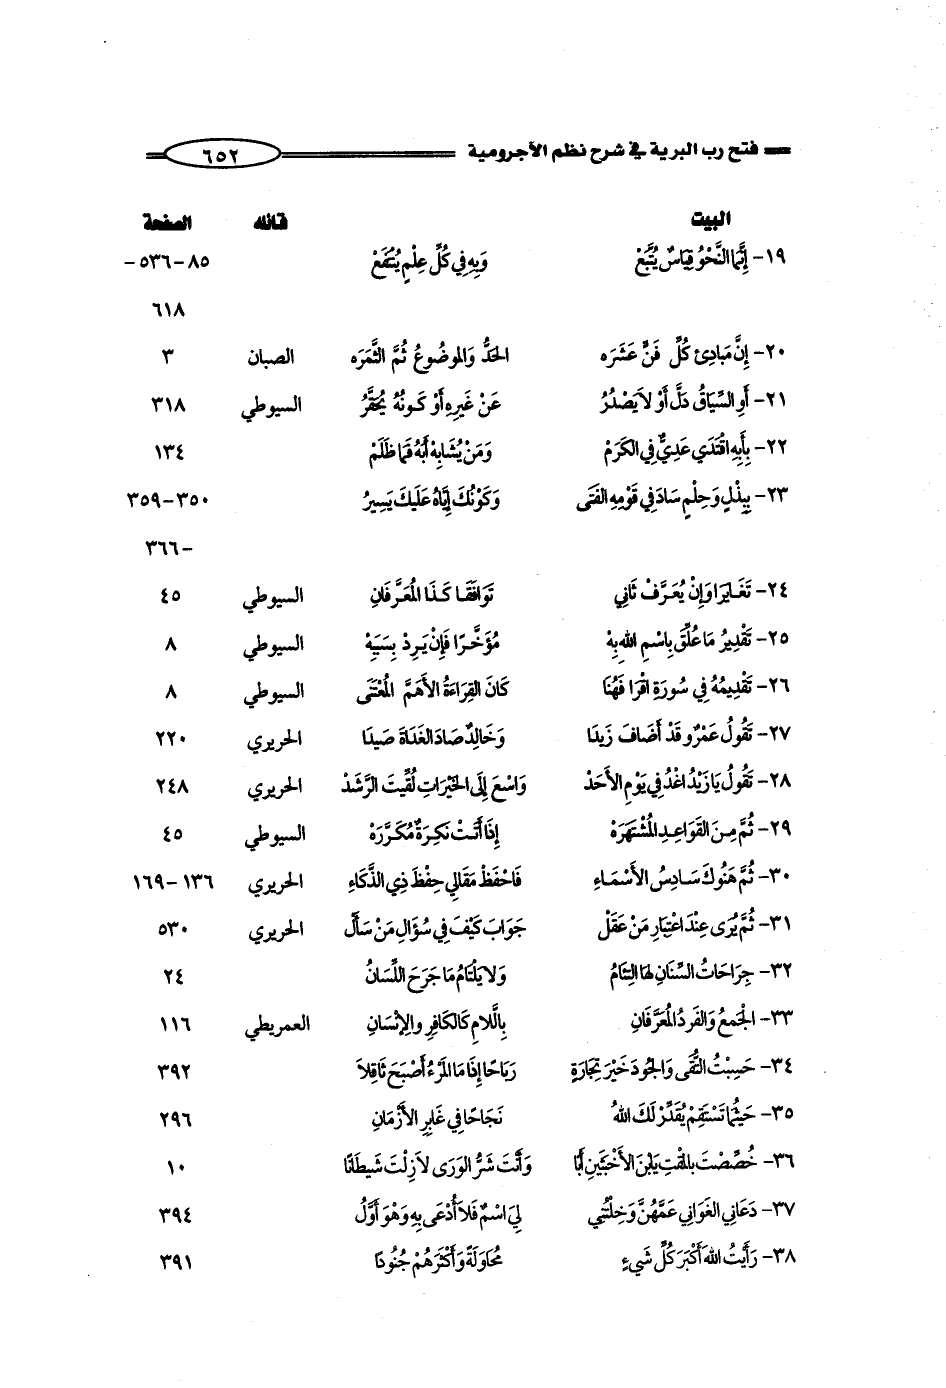 فتح رب البرية في شرح نظم الآجرومية ٦٥٢
البيت قائله الصفحة
١٩- إِنَّمَا النَّحْوُ قِيَاسٌ يُتَّبَعْ وَبِهِ فِي كُلِّ عِلْمٍ يُنْتَفَعْ ٨٥-٥٣٦-
٦١٨
٢٠- إِنَّ مَبَادِئ كُلِّ فَنٍّ عَشَرَه الحَدُّ وَالموضُوعُ ثُمَّ الثَّمَرَه الصبان ٣
٢١- أَوِ السِّيَاقُ دَلَّ أَوْ لاَ يَصْدُرُ عَنْ غَيرِهِ أَوْ كَونُهُ يُحَقَّرُ السيوطي ٣١٨
٢٢- بِأَبِهِ اقْتَدَي عَدِيٌّ فِي الكَرَمْ وَمَنْ يُشَابِهْ أَبَهُ فَمَا ظَلَمْ ١٣٤
٢٣- بِبَذْلٍ وَحِلْمٍ سَادَ فِي قَوْمِهِ الفَتَى وَكَوْنُكَ إِيَّاهُ عَلَيكَ يَسِيرُ ٣٥٠-٣٥٩
-٣٦٦
٢٤- تَغَايَرَا وَإِنْ يُعَرَّفْ ثَانِي تَوَافَقَا كَذَا المُعَرَّفَانِ السيوطي ٤٥
٢٥- تَقْدِيرُ مَا عُلِّقَ بِاسْمِ الله بِهْ مُؤَخَّرًا فَإِنْ يَرِدْ بِسَبَبِهْ السيوطي ٨
٢٦- تَقْدِيمُهُ فِي سُورَةِ اقْرَا فَهُنَا كَانَ القِرَاءَةُ الأَهَمَّ المُعْتَنَى السيوطي ٨
٢٧- تَقُولُ عَمْرٌو قَدْ أَضَافَ زَيدَا وَخَالِدٌ صَادَ الغَدَاةَ صَيدَا الحريري ٢٢٠
٢٨- تَقُولُ يَا زَيْدُ اغْدُ فِي يَوْمِ الأَحَدْ وَاسْعَ إِلَى الخَيْرَاتِ لُقِّيتَ الرَّشَدْ الحريري ٢٤٨
٢٩- ثُمَّ مِنَ القَوَاعِدِ المُشْتَهَرَهْ إِذَا أَتَتْ نَكِرَةٌ مُكَرَّرَهْ السيوطي ٤٥
٣٠- ثُمَّ هَنُوكَ سَادِسُ الأَسْمَاءِ فَاحْفَظْ مَقَالِي حِفْظَ ذِي الذَّكَاءِ الحريري ١٣٦-١٦٩
٣١- ثُمَّ يُرَى عِنْدَ اعْتِبَارِ مَنْ عَقَلْ جَوَابَ كَيْفَ فِي سُؤَالِ مَنْ سَأَلْ الحريري ٥٣٠
٣٢- جِرَاحَاتُ السِّنَانِ لهَا التِئَامُ وَلا يَلْتَامُ مَا جَرَحَ اللِّسَانُ ٢٤
٣٣- الجَمعُ وَالفَردُ المُعَرَّفَانِ بِاللَّامِ كَالكَافِرِ والإِنْسَانِ العمريطي ١١٦
٣٤- حَسِبْتُ التُّقَى وَالجُودَ خَيْرَ تِجَارَةٍ رَبَاحًا إِذَا مَا المَرْءُ أَصْبَحَ ثَاقِلاَ ٣٩٢
٣٥- حَيثُمَا تَسْتَقِمْ يُقَدِّرْ لَكَ اللهُ نَجَاحًا فِي غَابِرِ الأَزْمَانِ ٢٩٦
٣٦- خُصِّصْتَ بالمقْتِ يَابْنَ الأَخْبَثَينِ أَبًا وَأَنْتَ شَرُّ الوَرَى لاَ زِلْتَ شَيطَانًا ١٠
٣٧- دَعَانِي الغَوَانِي عَمَّهُنَّ وَخِلْتُنِي لِيَ اسْمٌ فَلاَ أُدْعَى بِهِ وَهْوَ أَوَّلُ ٣٩٤
٣٨- رَأَيْتُ اللهَ أَكْبَرَ كُلِّ شَيءٍ مُحَاوَلَةً وَأَكْثَرَهُمْ جُنُودًا ٣٩١